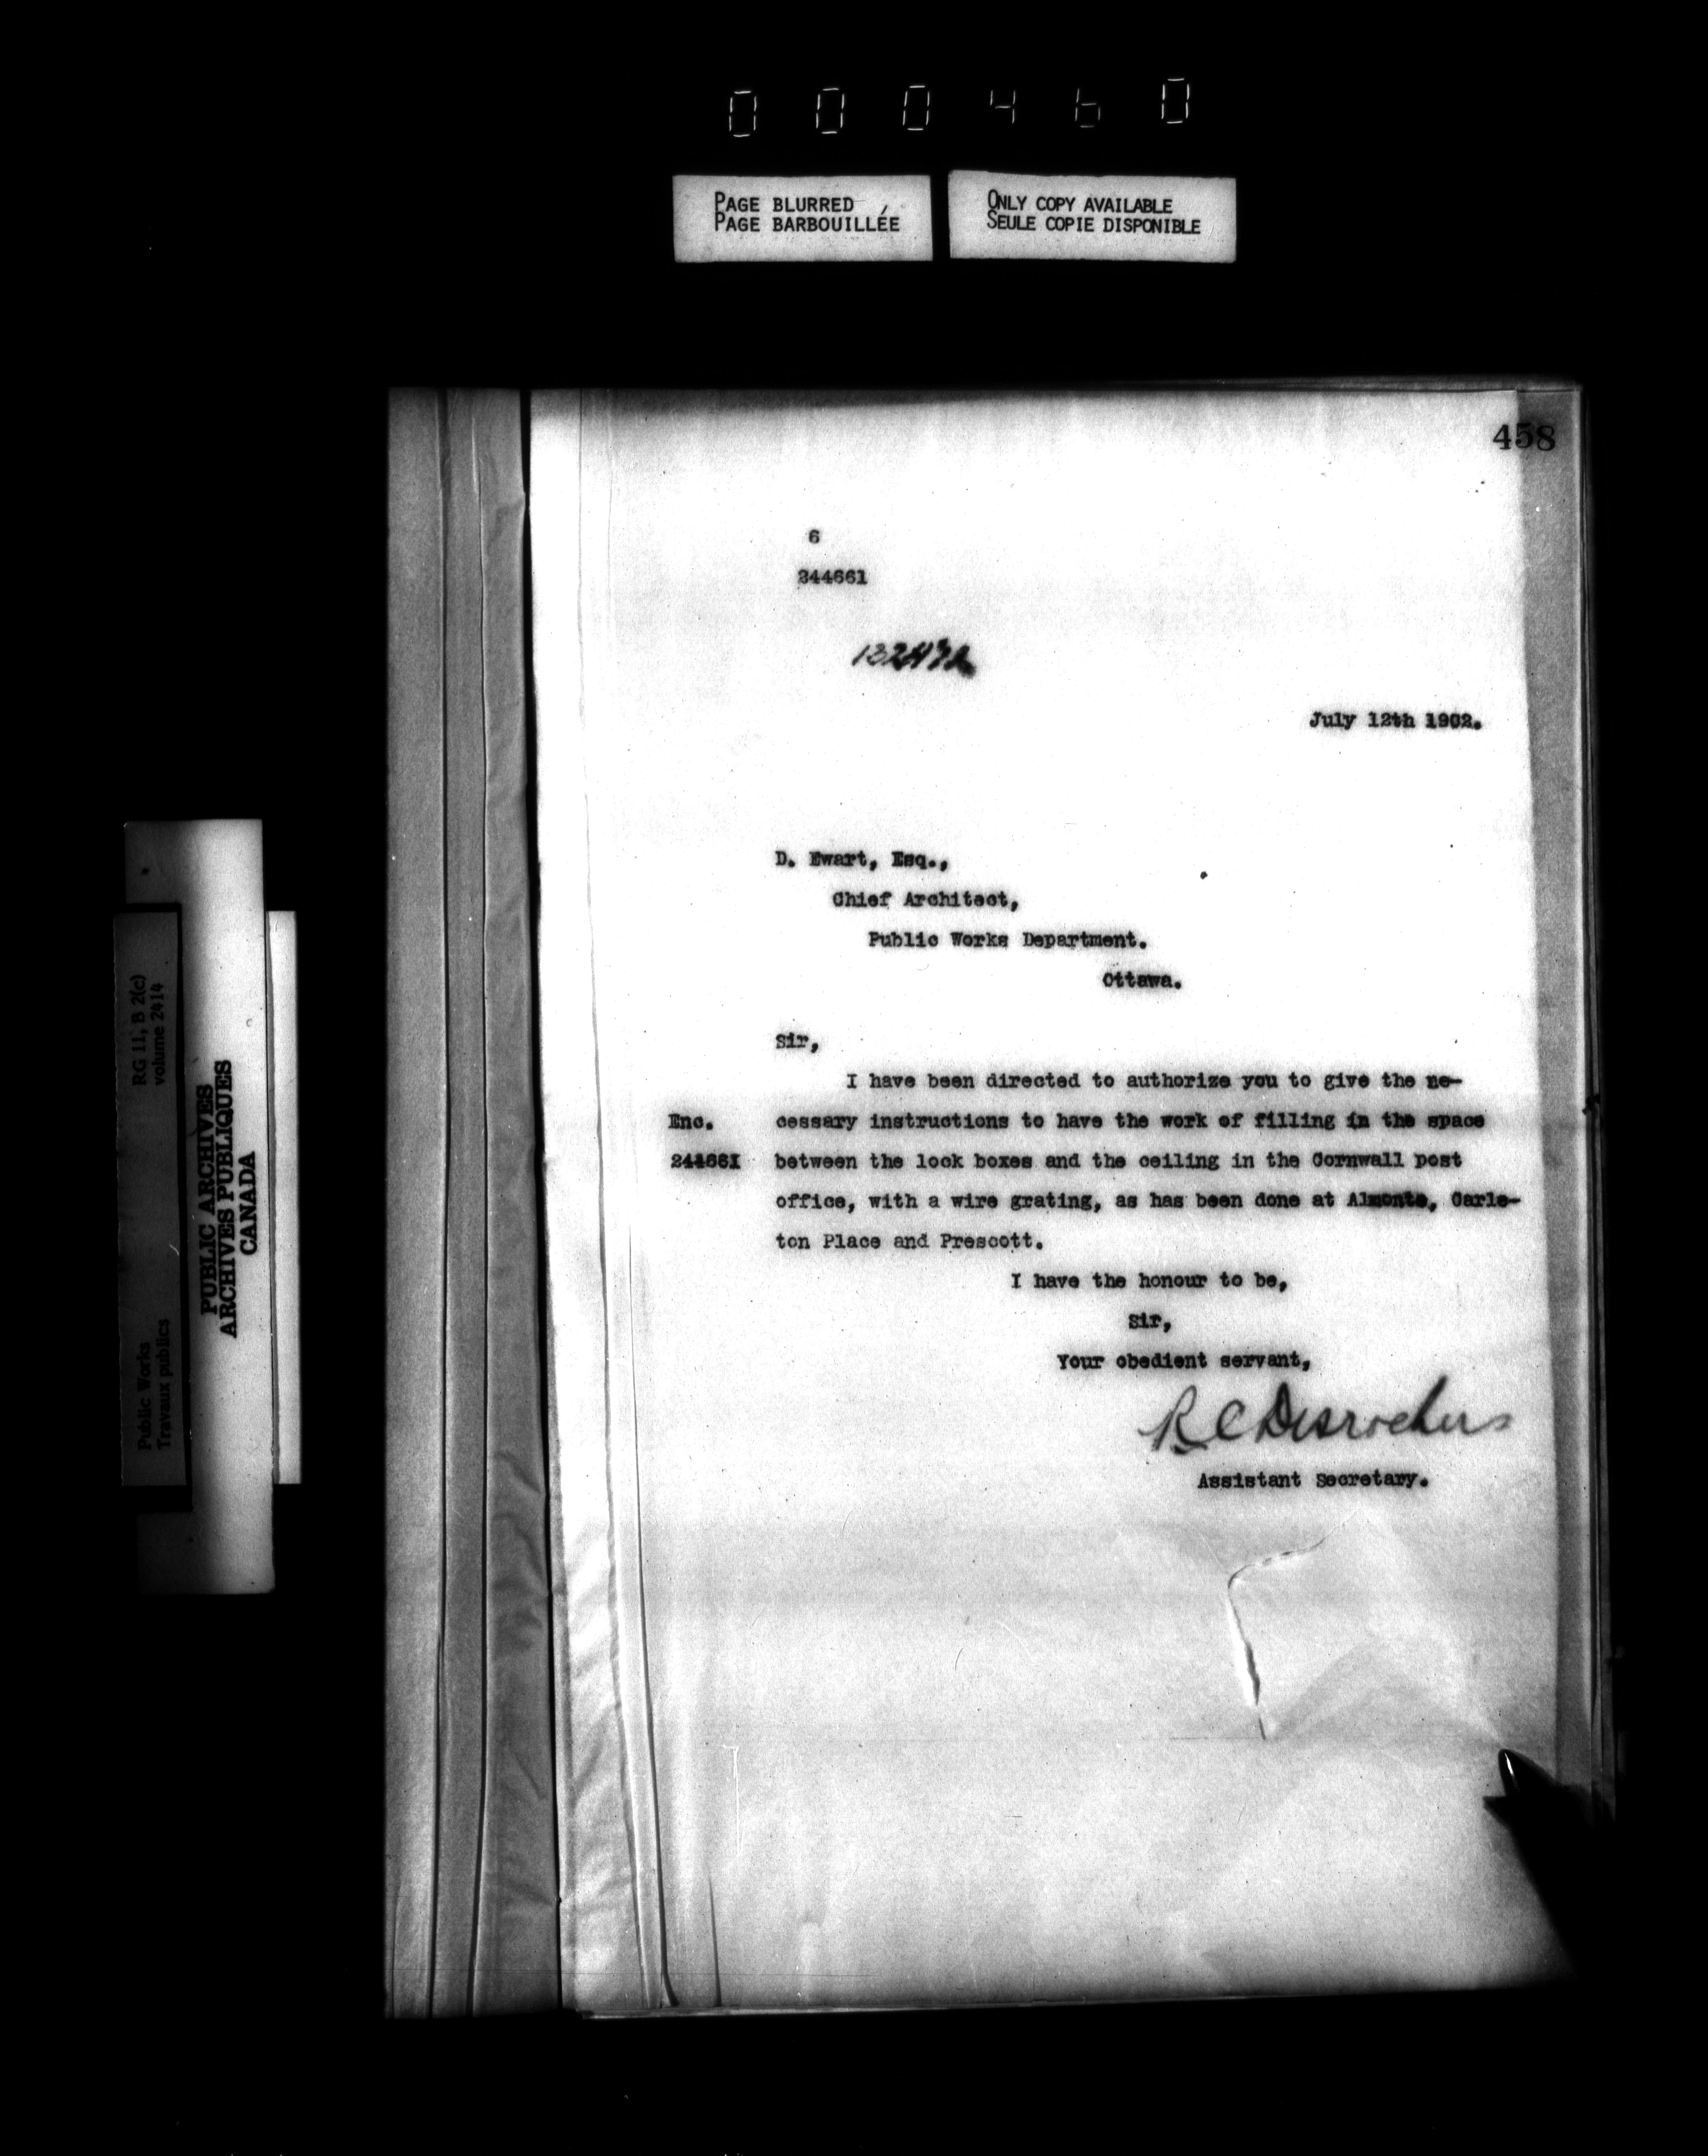 000460
PAGE BLURRED
PAGE BARBOUILLÉE
ONLY COPY AVAILABLE
SEULE COPIE DISPONIBLE
458
6
244661
July 12th 1902.
D. Ewart, Esq.,
Chief Architect,
Public Works Department.
Ottawa.
Sir,
I have been directed to authorize you to give the ne-
Enc. cessary instructions to have the work of filling in the space
244661 between the lock boxes and the ceiling in the Cornwall post
office, with a wire grating, as has been done at Almonte, Carle-
ton Place and Prescott.
I have the honour to be,
Sir,
Your obedient servant,
R C Desrochers
Assistant Secretary.
RG 11, B 2(c)
volume 2414
Public Works
Travaux publics
PUBLIC ARCHIVES
ARCHIVES PUBLIQUES
CANADA